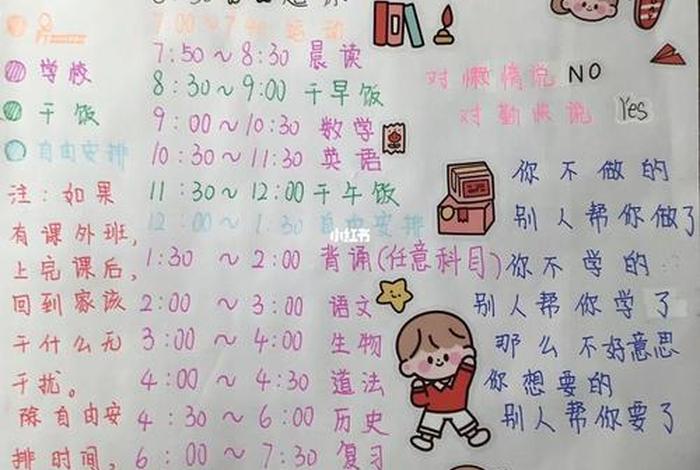 7:00~7:40 运动
7:50~8:30 晨读
8:30~9:00 干早饭
9:00~10:30 数学
10:30~11:30 英语
11:30~12:00 干午饭
12:00~1:30 自由安排
1:30~2:00 背诵(任意科目)
2:00~3:00 语文
3:00~4:00 生物
4:00~4:30 道法
4:30~6:00 历史
6:00~7:30 复习
学校
干饭
自由安排
注:如果
有课外班,
上完课后,
回到家该
干什么无
干扰。
除自由安
排时间,
对懒惰说 NO
对勤快说 Yes
你不做的
别人帮你做了
你不学的
别人帮你学了
那么不好意思
你想要的
别人帮你要了
小红书